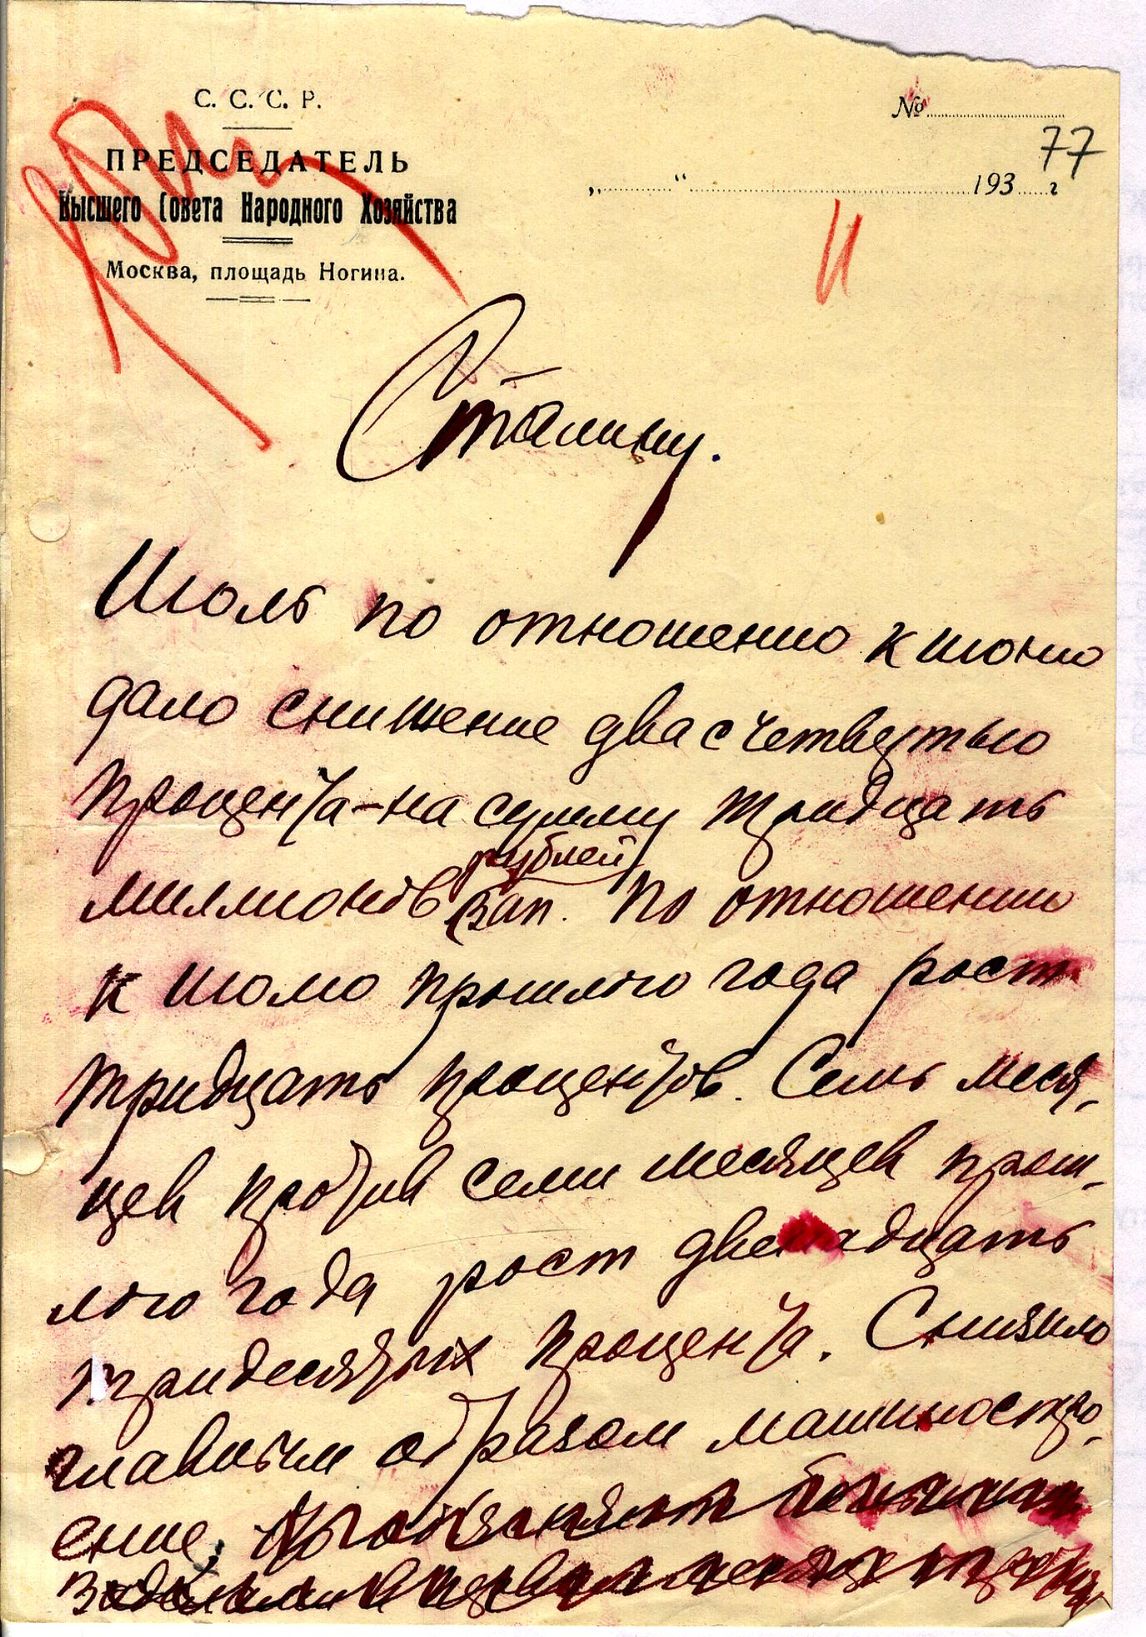 С. С. С. Р.
№
ПРЕДСЕДАТЕЛЬ
Высшего Совета Народного Хозяйства
Москва, площадь Ногина.
„ “ 193 г
77
Сталину.
Июль по отношению к июню
дало снижение два с четвертью
процента – на сумму тридцать
рублей
миллионов зап. По отношению
к июлю прошлого года рост
тридцать процентов. Семь меся-
цев против семи месяцев прош-
лого года рост двенадцать
три десятых процента. Снизило
главным образом машиностро-
ение,